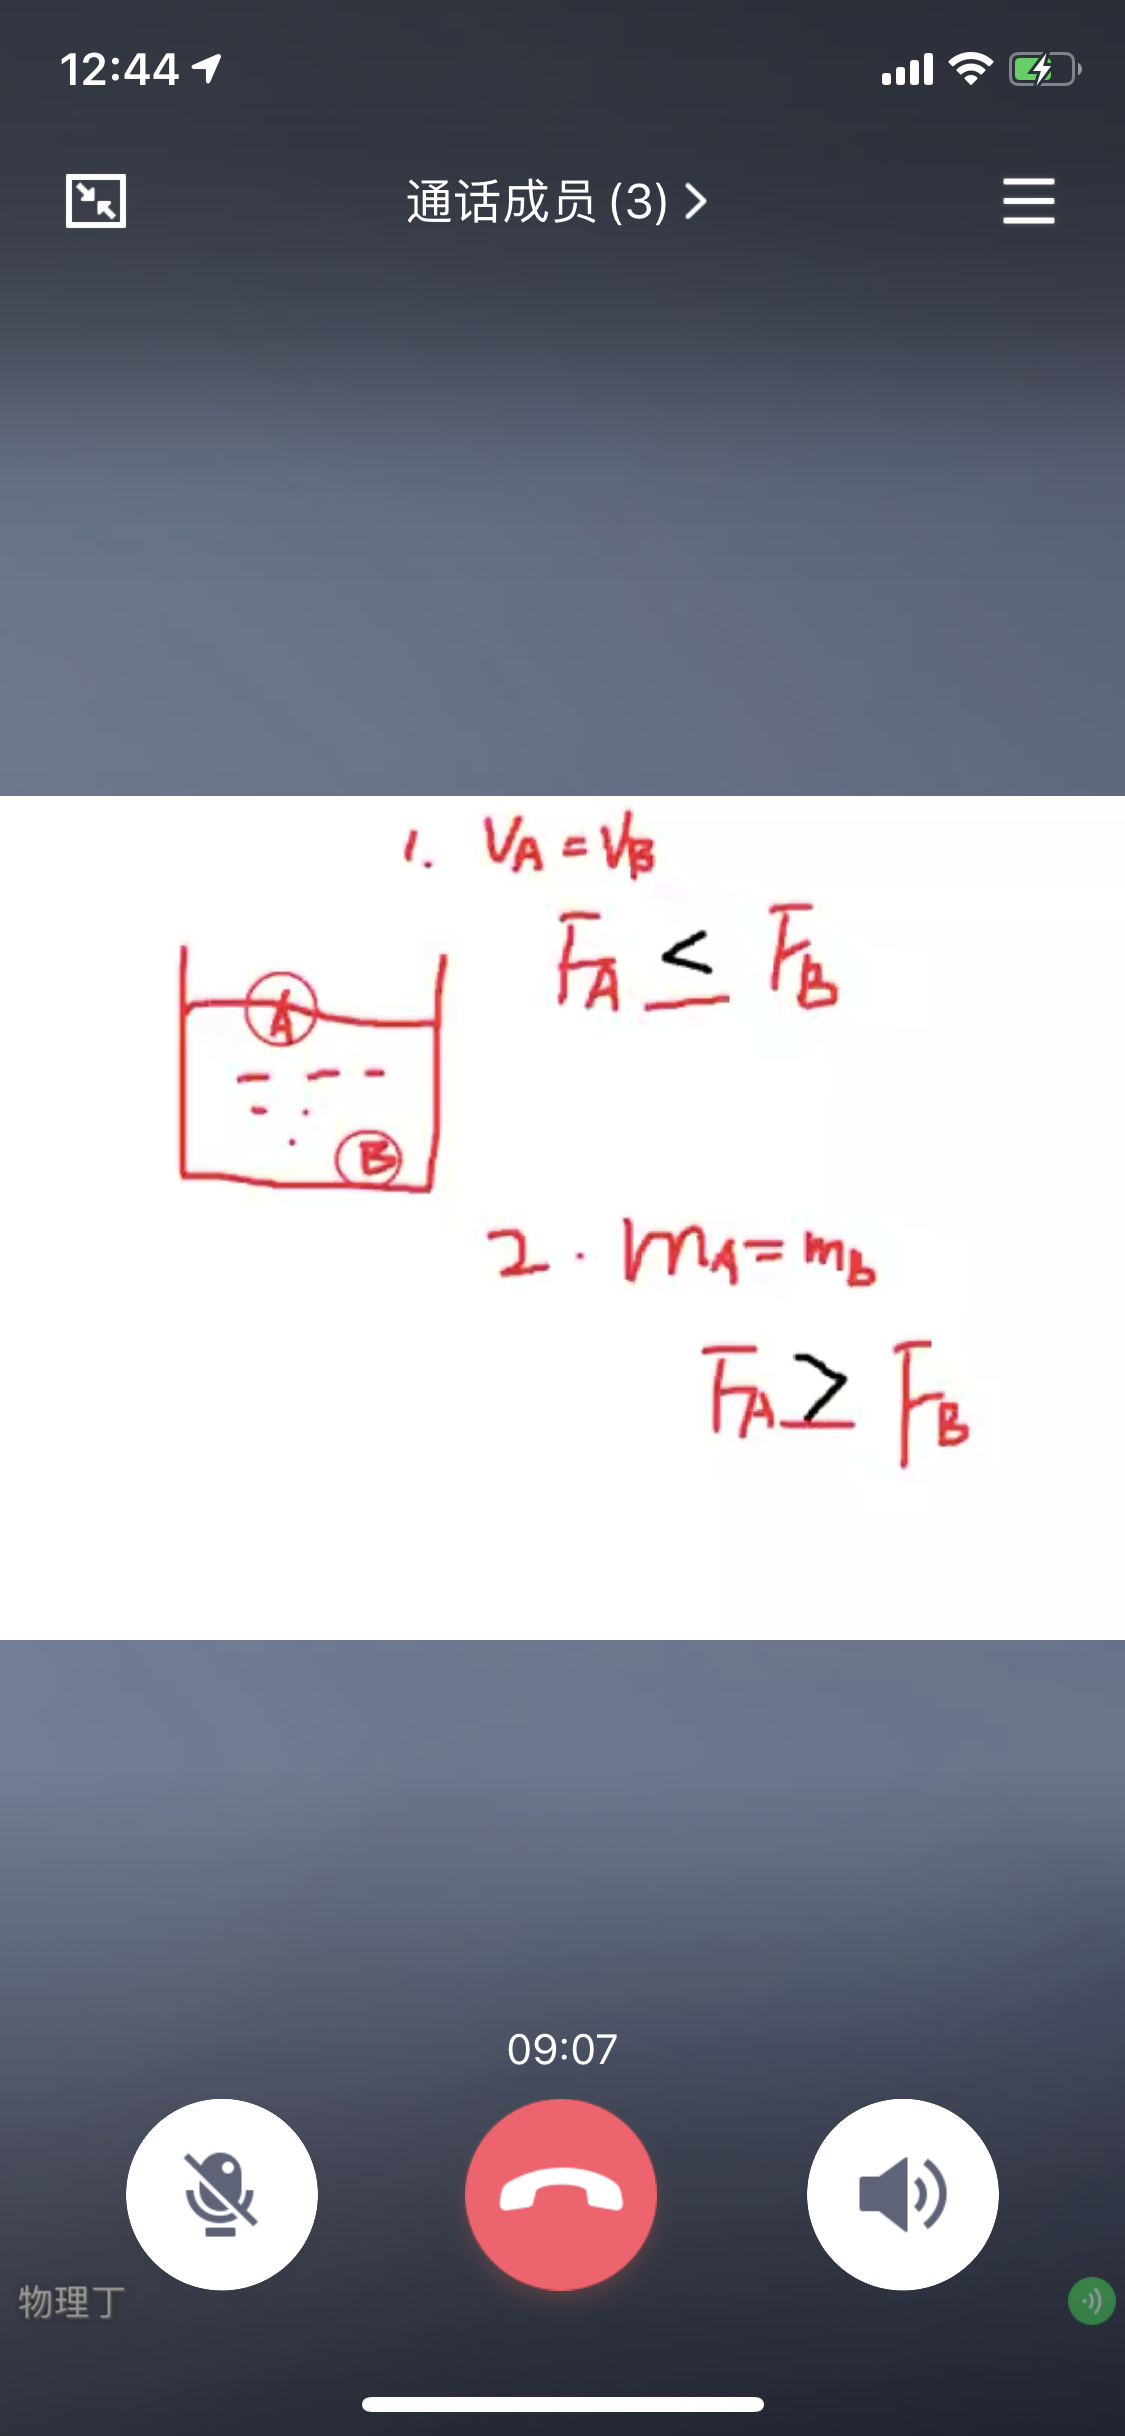 12:44
通话成员 (3)
1. VA = VB
FA < FB
A
B
2. mA = mB
FA > FB
09:07
物理丁